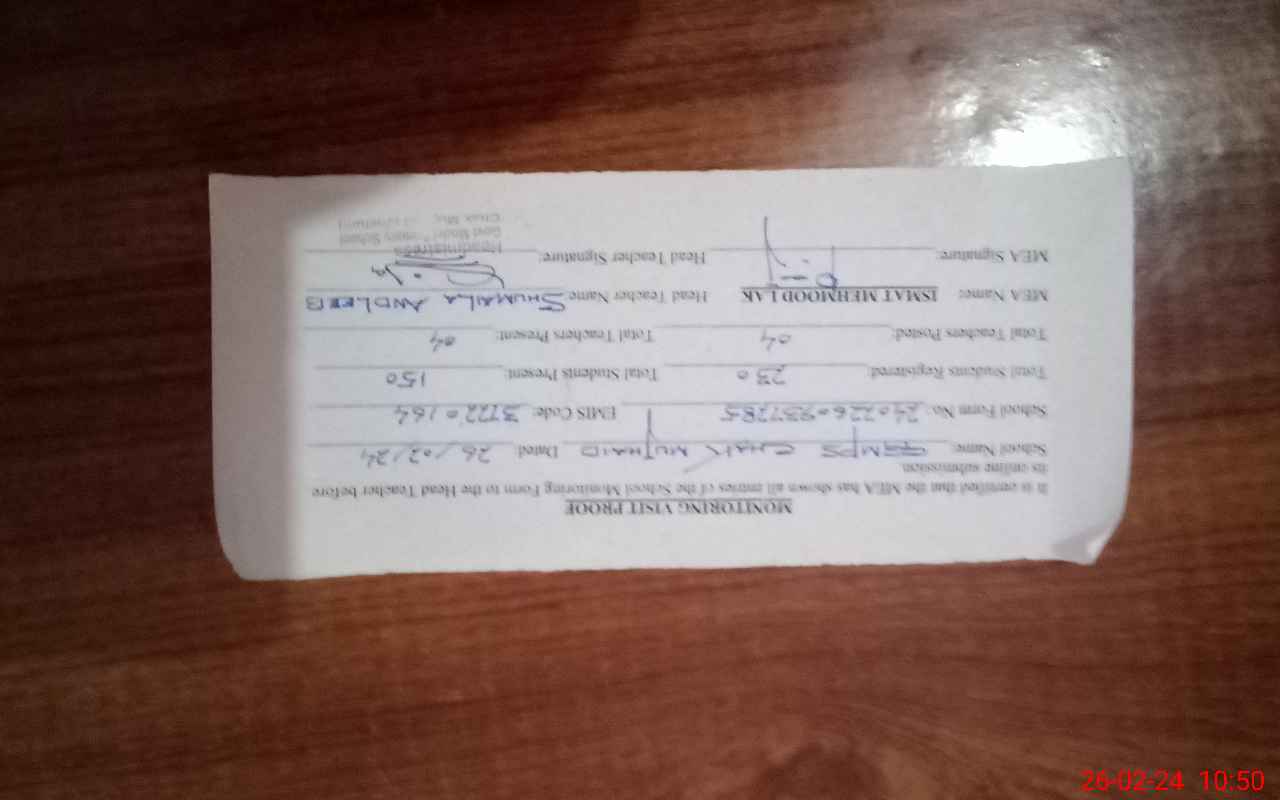 MONITORING VISIT PROOF
It is certified that the MEA has shown all entries of the School Monitoring Form to the Head Teacher before
its online submission
School Name: GGMPS CHAK MUJHAID Dated: 26/02/24
School Form No: 240226093778 EMIS Code: 37220164
Total Students Registered: 230 Total Students Present: 150
Total Teachers Posted: 04 Total Teachers Present: 04
MEA Name: ISMAT MEHMOOD LAK Head Teacher Name: SHUMAILA ANDLEEB
MEA Signature: Head Teacher Signature:
Headmistress
Govt School
Chak
26-02-24 10:50